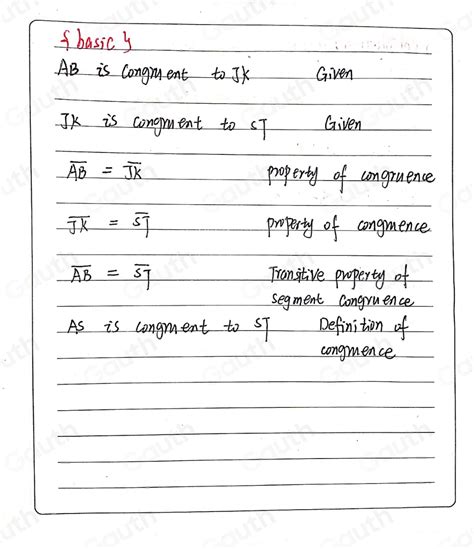 { basic }
AB is congruent to JK Given
JK is congruent to ST Given
AB = JK property of congruence
JK = ST property of congruence
AB = ST Transitive property of
segment congruence
AS is congruent to ST Definition of
congruence